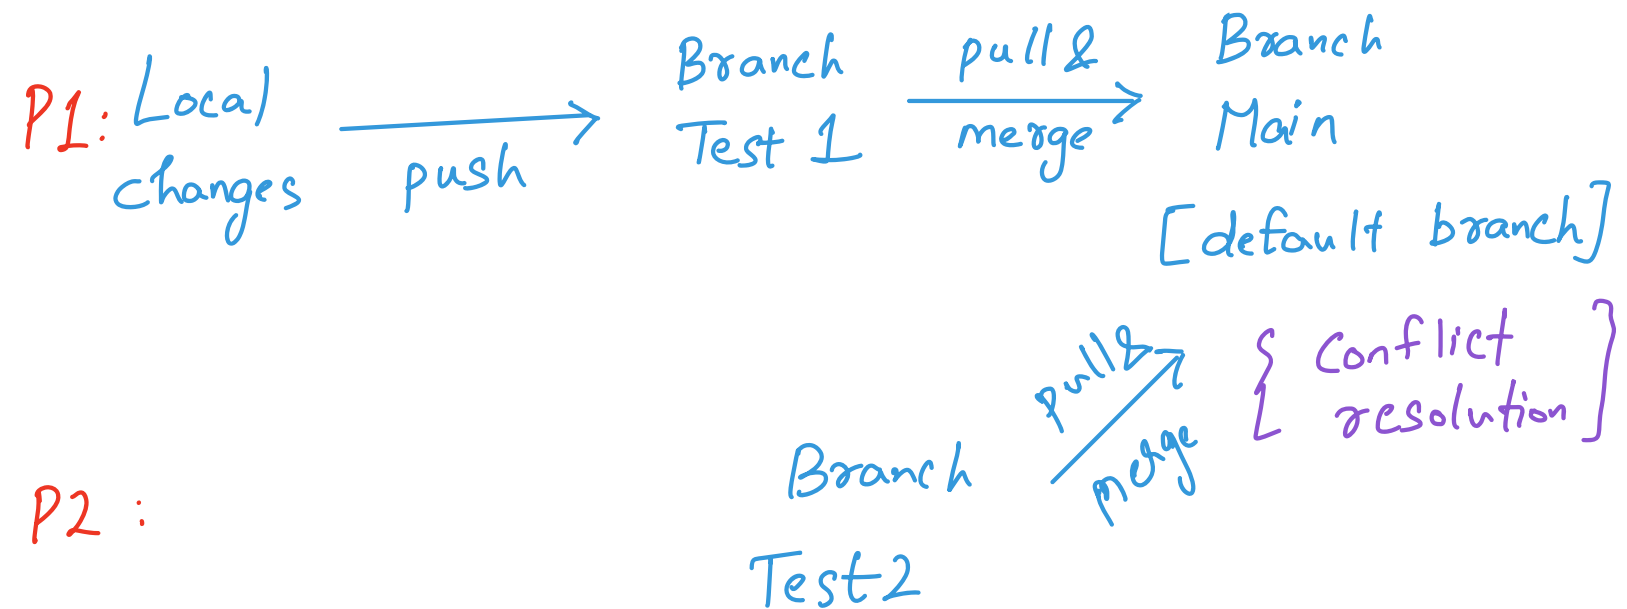 P1: Local changes
push
Branch Test 1
pull &
merge
Branch Main
[default branch]
P2 :
Branch Test2
pull &
merge
{ Conflict resolution }